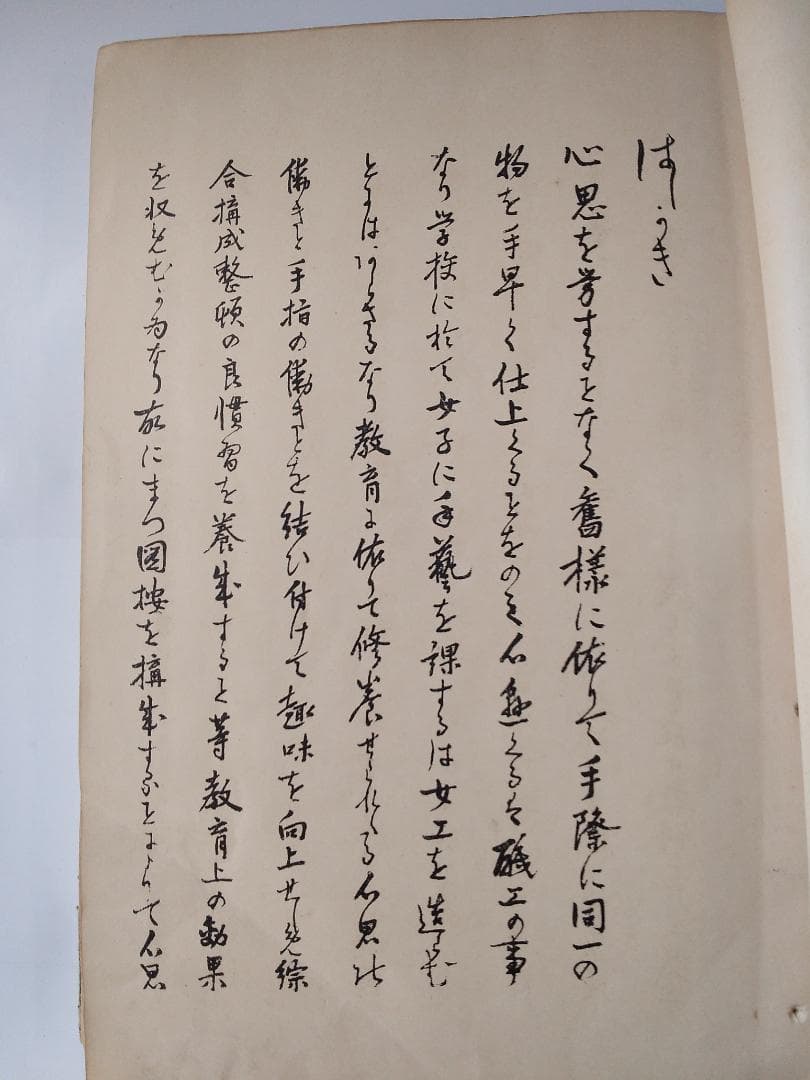 はしかき
心思を労することなく旧様に依りて手際に同一の
物を手早く仕上くることをのみ心
職工の事
なり学校に於て女子に手藝を課するは女工を造らむ
とにはあらさるなり教育に依りて修養せられたる心思の
働きと手指の働きとを結ひ付けて趣味を向上せしめ綜
合構成整頓の良慣習を養成すること等教育上の効果
を収めむか為なり故にまつ図按を構成することによりて心思